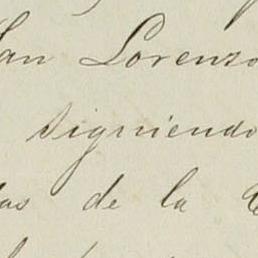 San Lorenzo
siguiendo
las de la